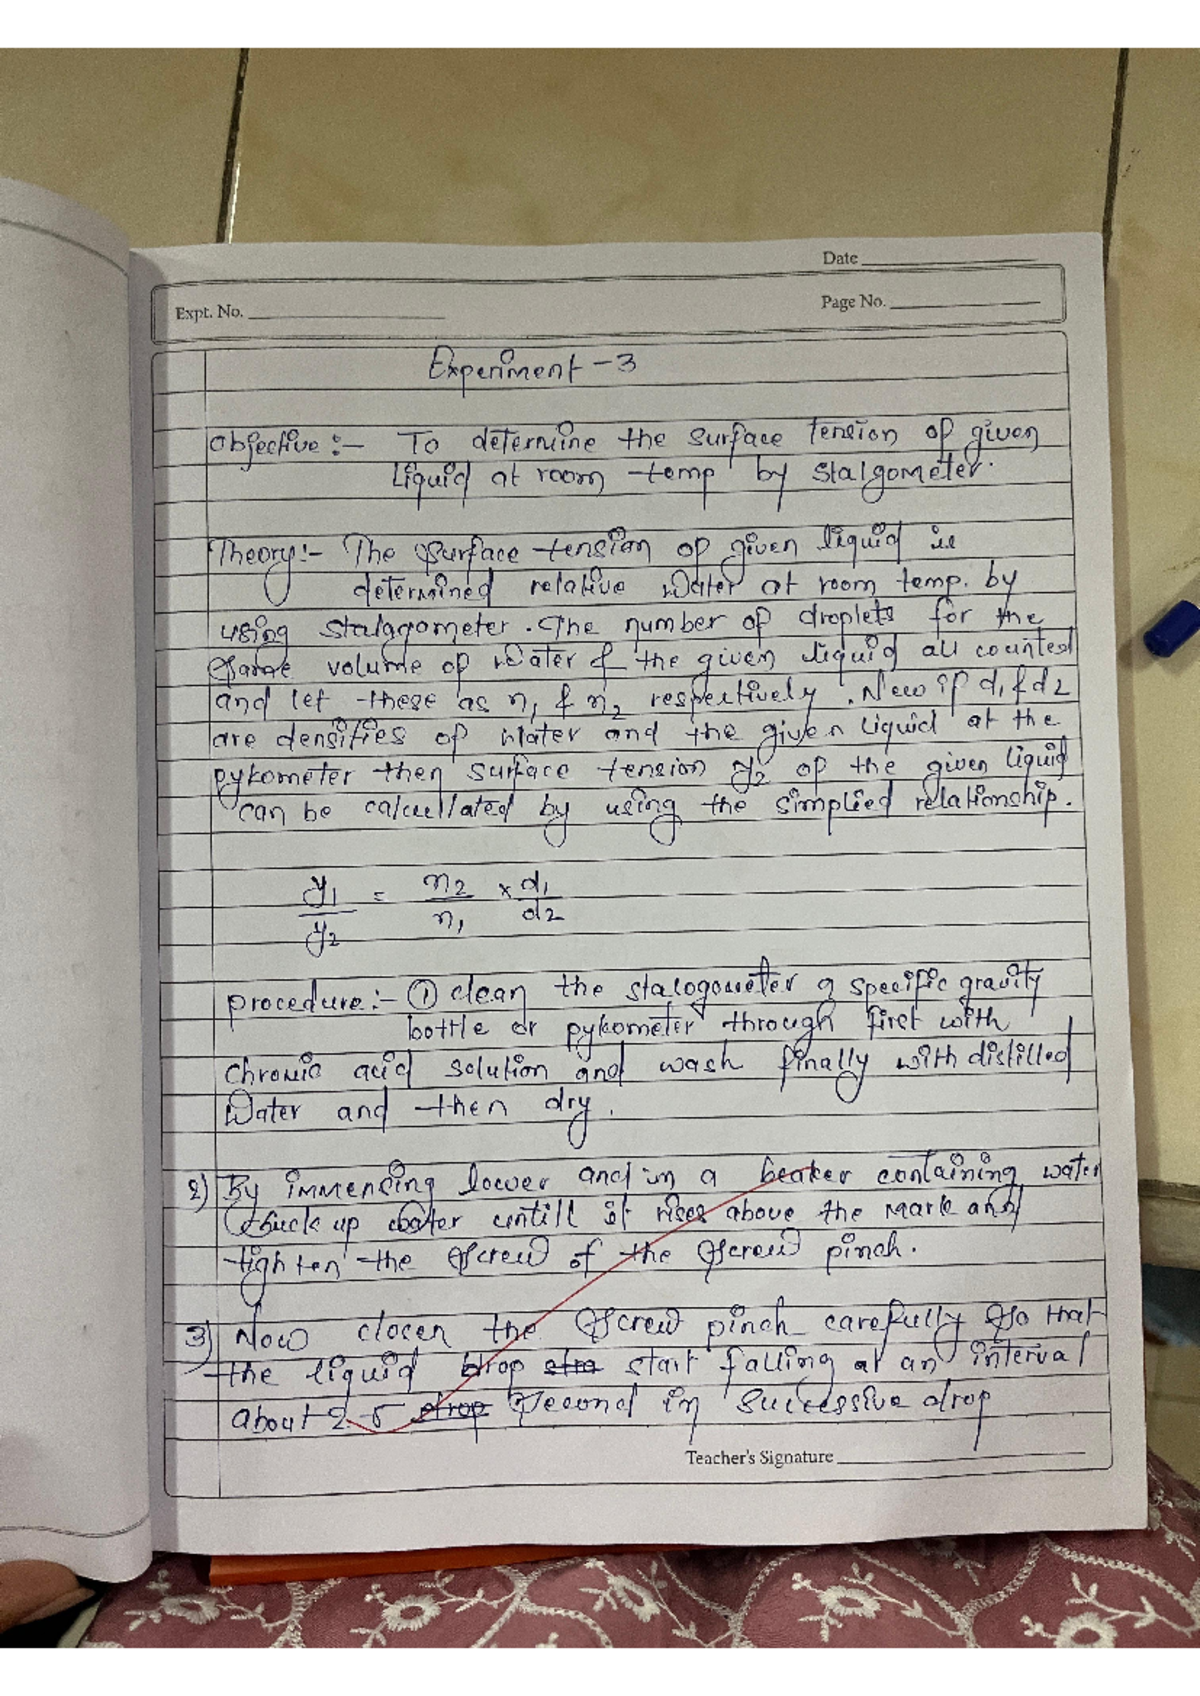 Date
Expt. No.
Page No.
Experiment - 3
Objective :- To determine the surface tension of given
liquid at room temp by stalgometer.
Theory:- The surface tension of given liquid is
determined relative water at room temp. by
using stalagometer. The number of droplets for the
same volume of water & the given liquid all counted
and let these as n1 & n2 respectively. Now if d1 & d2
are densities of water and the given liquid at the
pykometer then surface tension y2 of the given liquid
can be calcullated by using the simplied relationship.
y1/y2 = n2/n1 × d1/d2
procedure:- ① clean the stalogometer a specific gravity
bottle or pykometer through first with
chromic acid solution and wash finally with distilled
water and then dry.
2) By immersing lower and in a beaker containing water
suck up water untill it rises above the mark and
tighten the screw of the screw pinch.
3) Now closen the screw pinch carefully so that
the liquid drop start falling at an interval
about 2-5 drop second in successive drop
Teacher's Signature